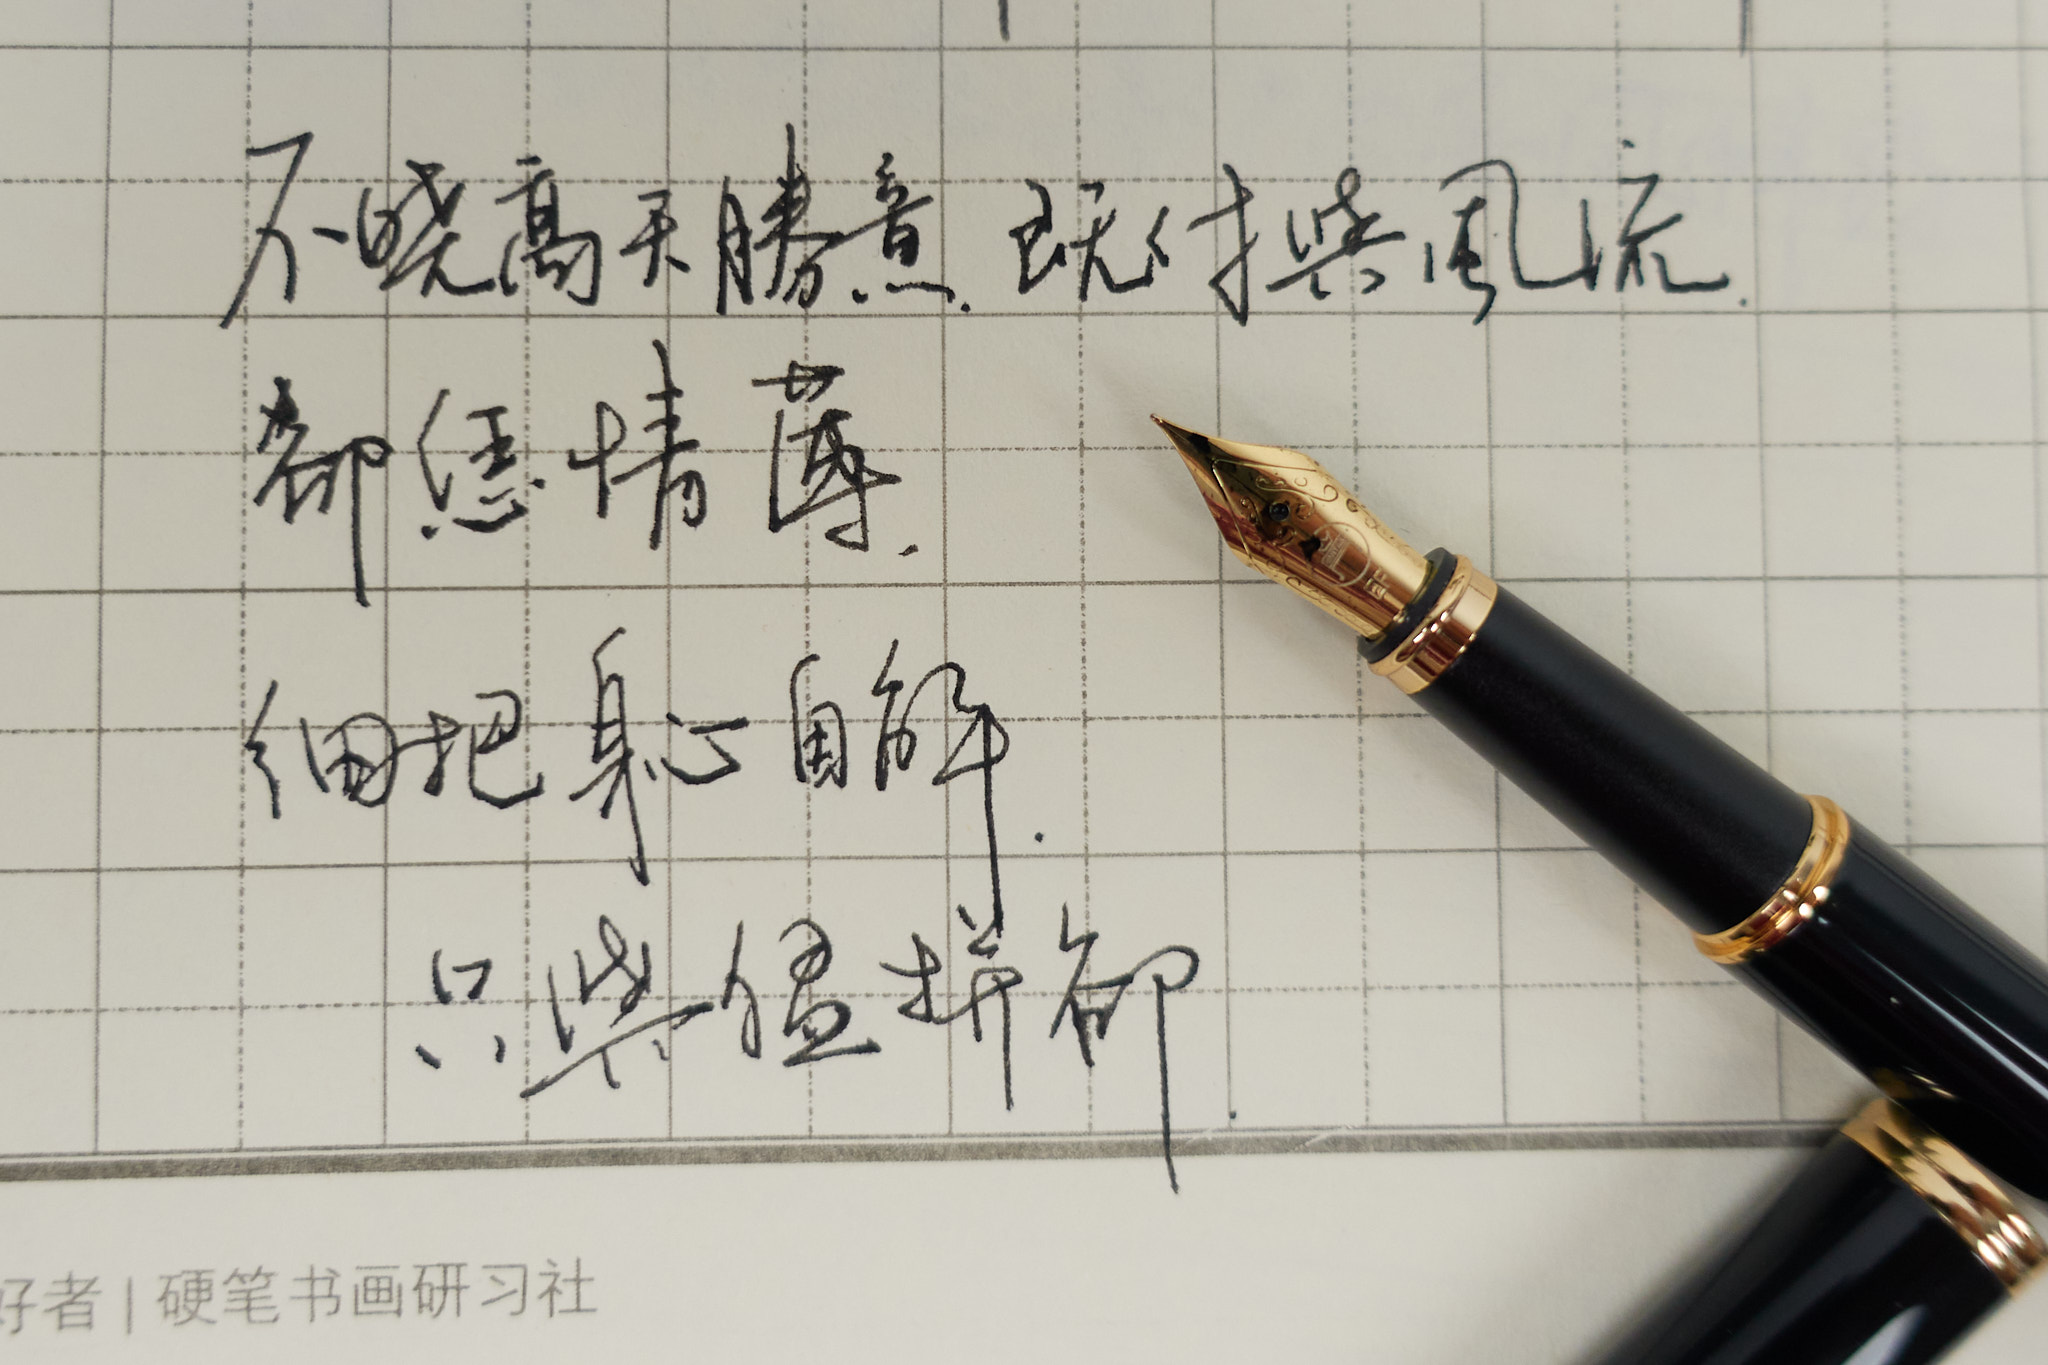 不晓高天勝意.既付與風流.
都恁情薄.
细把身心自解.
只與猛拼卻.
好者 | 硬笔书画研习社